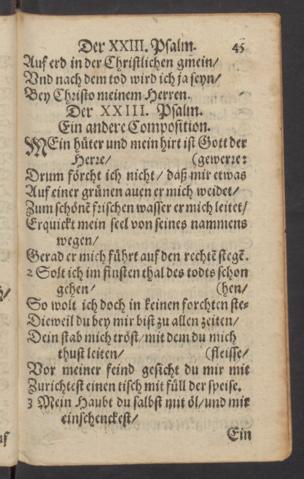 Der XXIII. Psalm. 45
Auf erd in der Christlichen gmein/
Vnd nach dem tod wird ich ja seyn/
Bey Christo meinem Herren.
Der XXIII. Psalm.
Ein andere Composition.
MEin hüter und mein hirt ist Gott der
Herre/ (gewerre:
Drum förcht ich nicht/ daß mir etwas
Auf einer grünen auen er mich weidet/
Zum schönẽ frischen wasser er mich leitet/
Erquickt mein seel von seines nammens
wegen/
Gerad er mich führt auf den rechtẽ stegẽ.
2 Solt ich im finsten thal des todts schon
gehen/ (hen/
So wolt ich doch in keinen forchten ste-
Dieweil du bey mir bist zu allen zeiten/
Dein stab mich tröst/ mit dem du mich
thust leiten/ (fleisse/
Vor meiner feind gesicht du mir mit
Zurichtest einen tisch mit füll der speise.
3 Mein Haubt du salbst mit öl/ und mir
einschenckest/
Ein